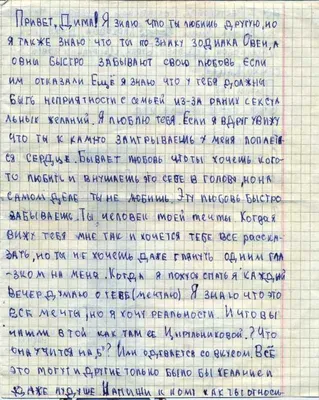 Привет, Дима! Я знаю что ты любишь другую, но
я также знаю что ты по знаку зодиака Овен, а
овны быстро забывают свою любовь если
им отказали Ещё я знаю что у тебя должны
быть неприятности с семьёй из-за раних сексуа
льных желаний. Я люблю тебя Если я вдруг увижу
что ты к камно заигрываешь у меня лопает
ся сердце. Бывает любовь что ты хочешь кого-
то любить и внушаешь это себе в голову, но на
самом деле ты не любишь. Эту любовь быстро
забываешь. Ты человек моей мечты Когда я
вижу тебя мне так и хочется тебе всё расска-
зать, но ты не хочешь даже глянуть одним гла
зком на меня. Когда я ложусь спать я каждый
вечер думаю о тебе (мечтаю) Я знаю что это
всё мечты, но я хочу реальности И что вы
нашли в той как там её Цирульниковой.? Что
она учится на 5? Или одевается со вкусом. Всё
это могут и другие только было бы желание и
даже лудуше Напиши к кому как ты относи-